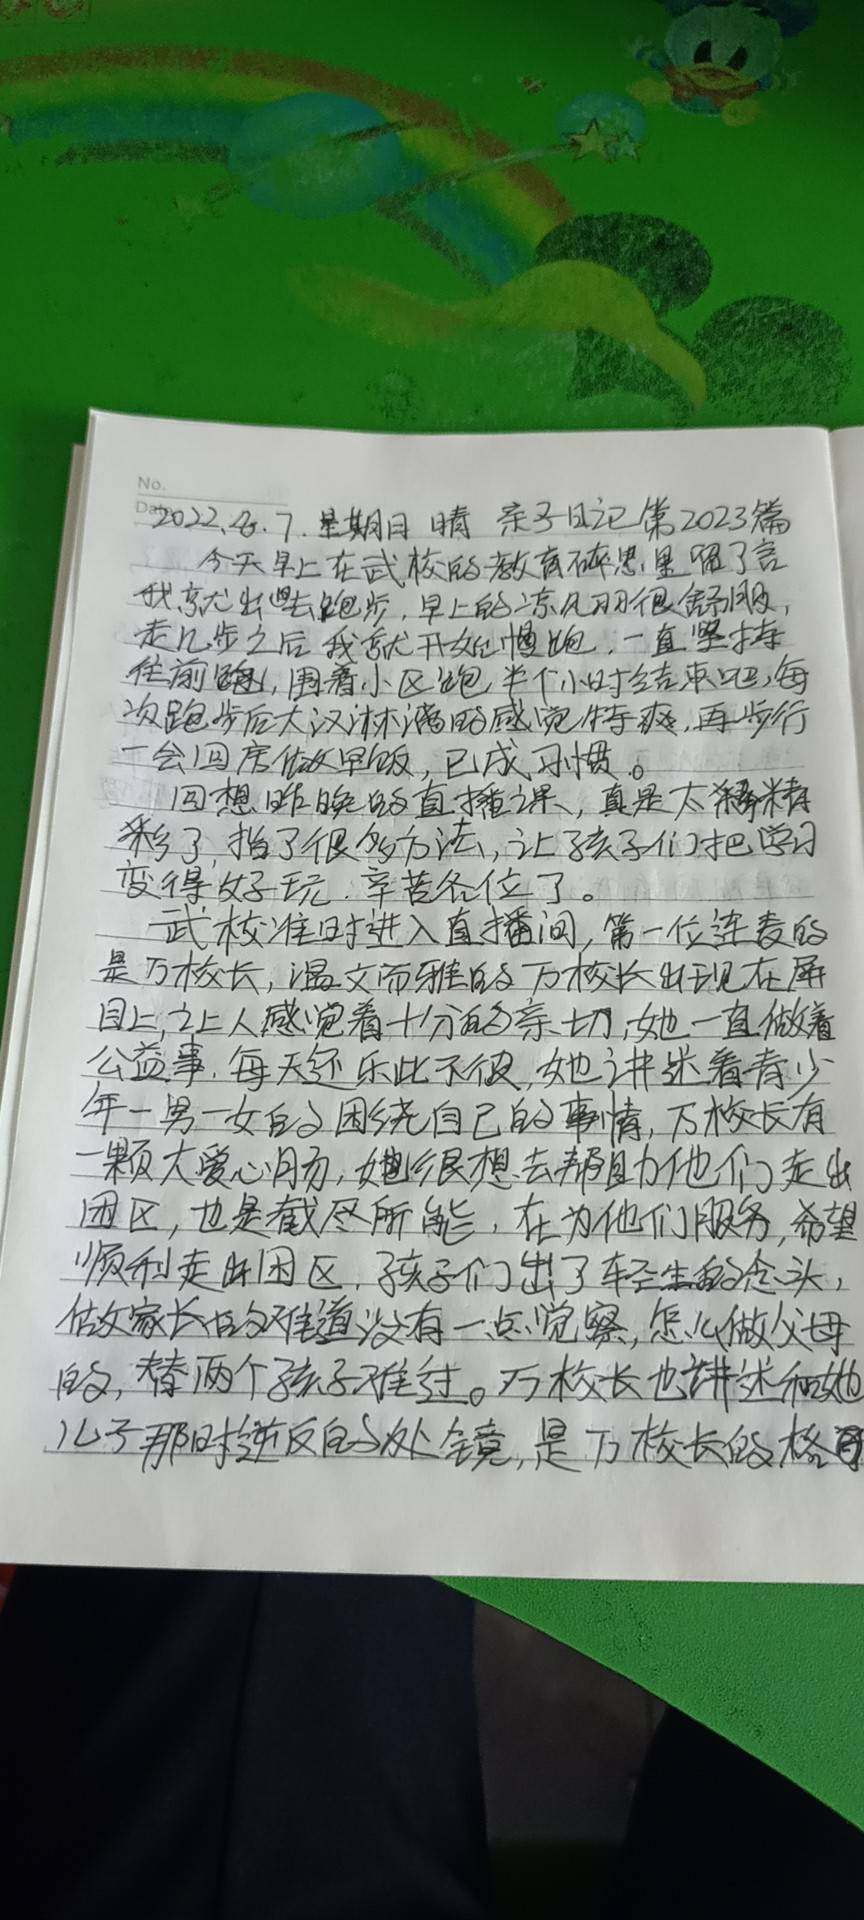 No.
Date
2022.8.7.星期日 晴 亲子日记第2023篇
今天早上在武校的教育碎思里留了言
我就出去跑步,早上的凉风刮很舒服,
走几步之后我就开始慢跑,一直坚持
往前跑,围着小区跑,半个小时结束吧,每
次跑步后大汉淋漓的感觉特爽,再步行
一会回房做早饭,已成习惯。
回想昨晚的直播课,真是太精
彩了,指了很多方法,让孩子们把学习
变得好玩.辛苦各位了。
武校准时进入直播间,第一位连麦的
是万校长,温文而雅的万校长出现在屏
目上,让人感觉着十分的亲切,她一直做着
公益事,每天还乐此不彼,她讲述着青少
年一男一女的困绕自己的事情,万校长有
一颗大爱心肠,她很想去帮助他们走出
困区,也是截尽所能,在为他们服务,希望
顺利走出困区,孩子们出了轻生的念头,
做家长的难道没有一点觉察,怎么做父母
的,替两个孩子难过。万校长也讲述和她
儿子那时逆反的处镜,是万校长的格